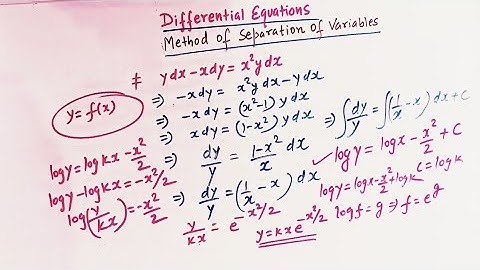 Differential Equations
Method of Separation of Variables
≠ ydx - xdy = x²y dx
y = f(x)
⇒ -xdy = x²ydx - ydx
⇒ -xdy = (x²-1) y dx
⇒ xdy = (1-x²) y dx ⇒ ∫ dy/y = ∫(1/x - x) dx + C
⇒ dy/y = (1-x²)/x dx
✓ log y = log x - x²/2 + C
⇒ dy/y = (1/x - x) dx
C = log k
log y = log x - x²/2 + log k
log y = log kx - x²/2
log y - log kx = -x²/2
log(y/kx) = -x²/2
y/kx = e^(-x²/2)
y = kx e^(-x²/2)
log f = g ⇒ f = e^g